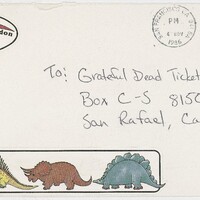 don
SAN FRANCISCO CA
PM
1986
To: Grateful Dead Ticket
Box C-S 8150
San Rafael, Ca